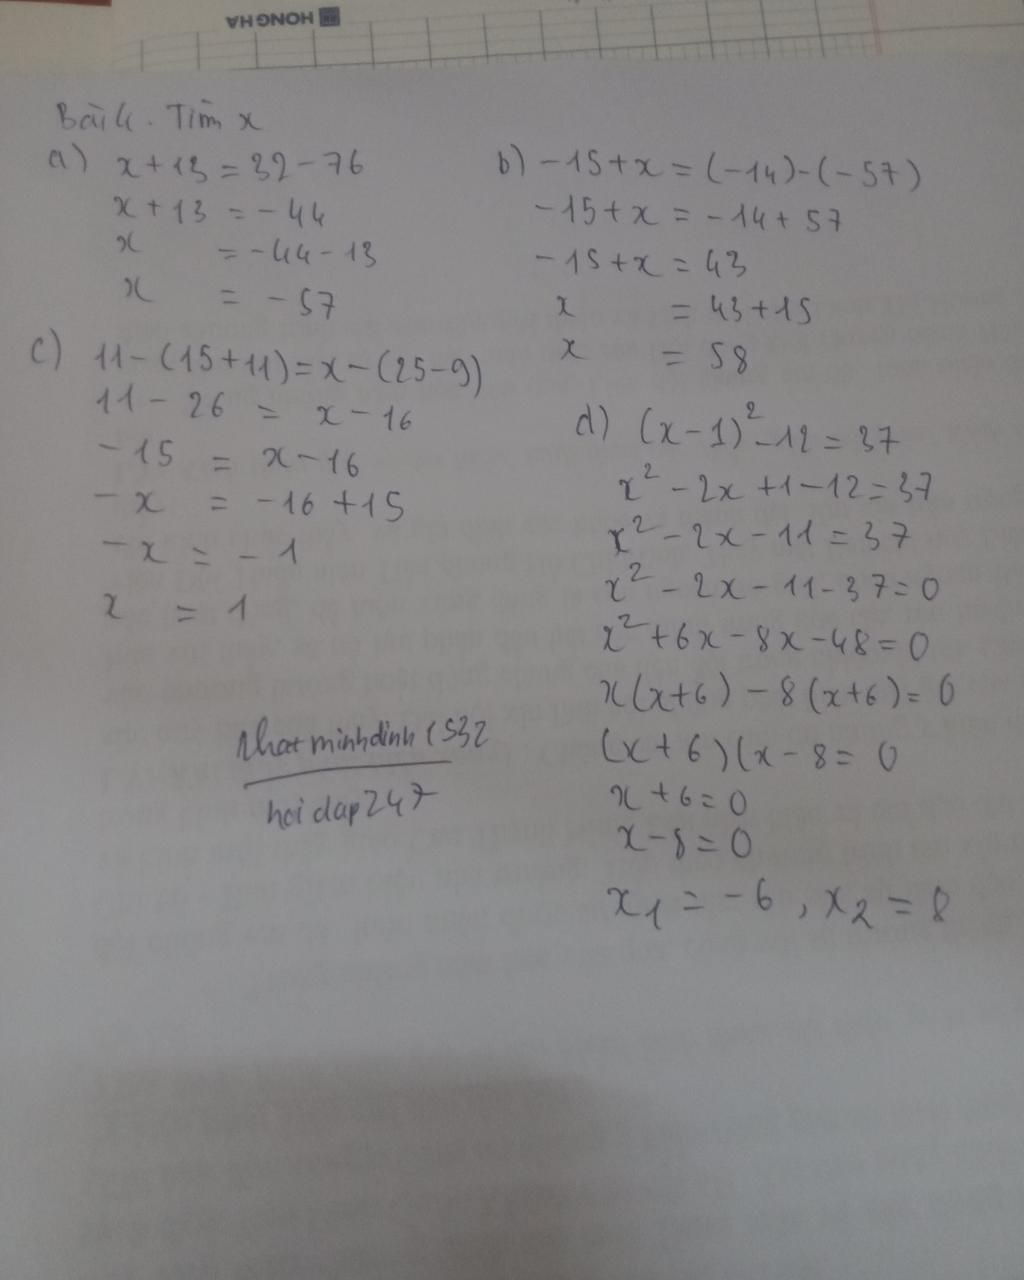 HONG HA
Bài 4. Tìm x
a) x + 13 = 32 - 76
x + 13 = -44
x = -44 - 13
x = -57
b) -15 + x = (-14) - (-57)
-15 + x = -14 + 57
-15 + x = 43
x = 43 + 15
x = 58
c) 11 - (15 + 11) = x - (25 - 9)
11 - 26 = x - 16
-15 = x - 16
-x = -16 + 15
-x = -1
x = 1
d) (x - 1)² - 12 = 37
x² - 2x + 1 - 12 = 37
x² - 2x - 11 = 37
x² - 2x - 11 - 37 = 0
x² + 6x - 8x - 48 = 0
x(x + 6) - 8(x + 6) = 0
(x + 6)(x - 8 = 0
x + 6 = 0
x - 8 = 0
x₁ = -6, x₂ = 8
nhatminhdinh1532
hoidap247